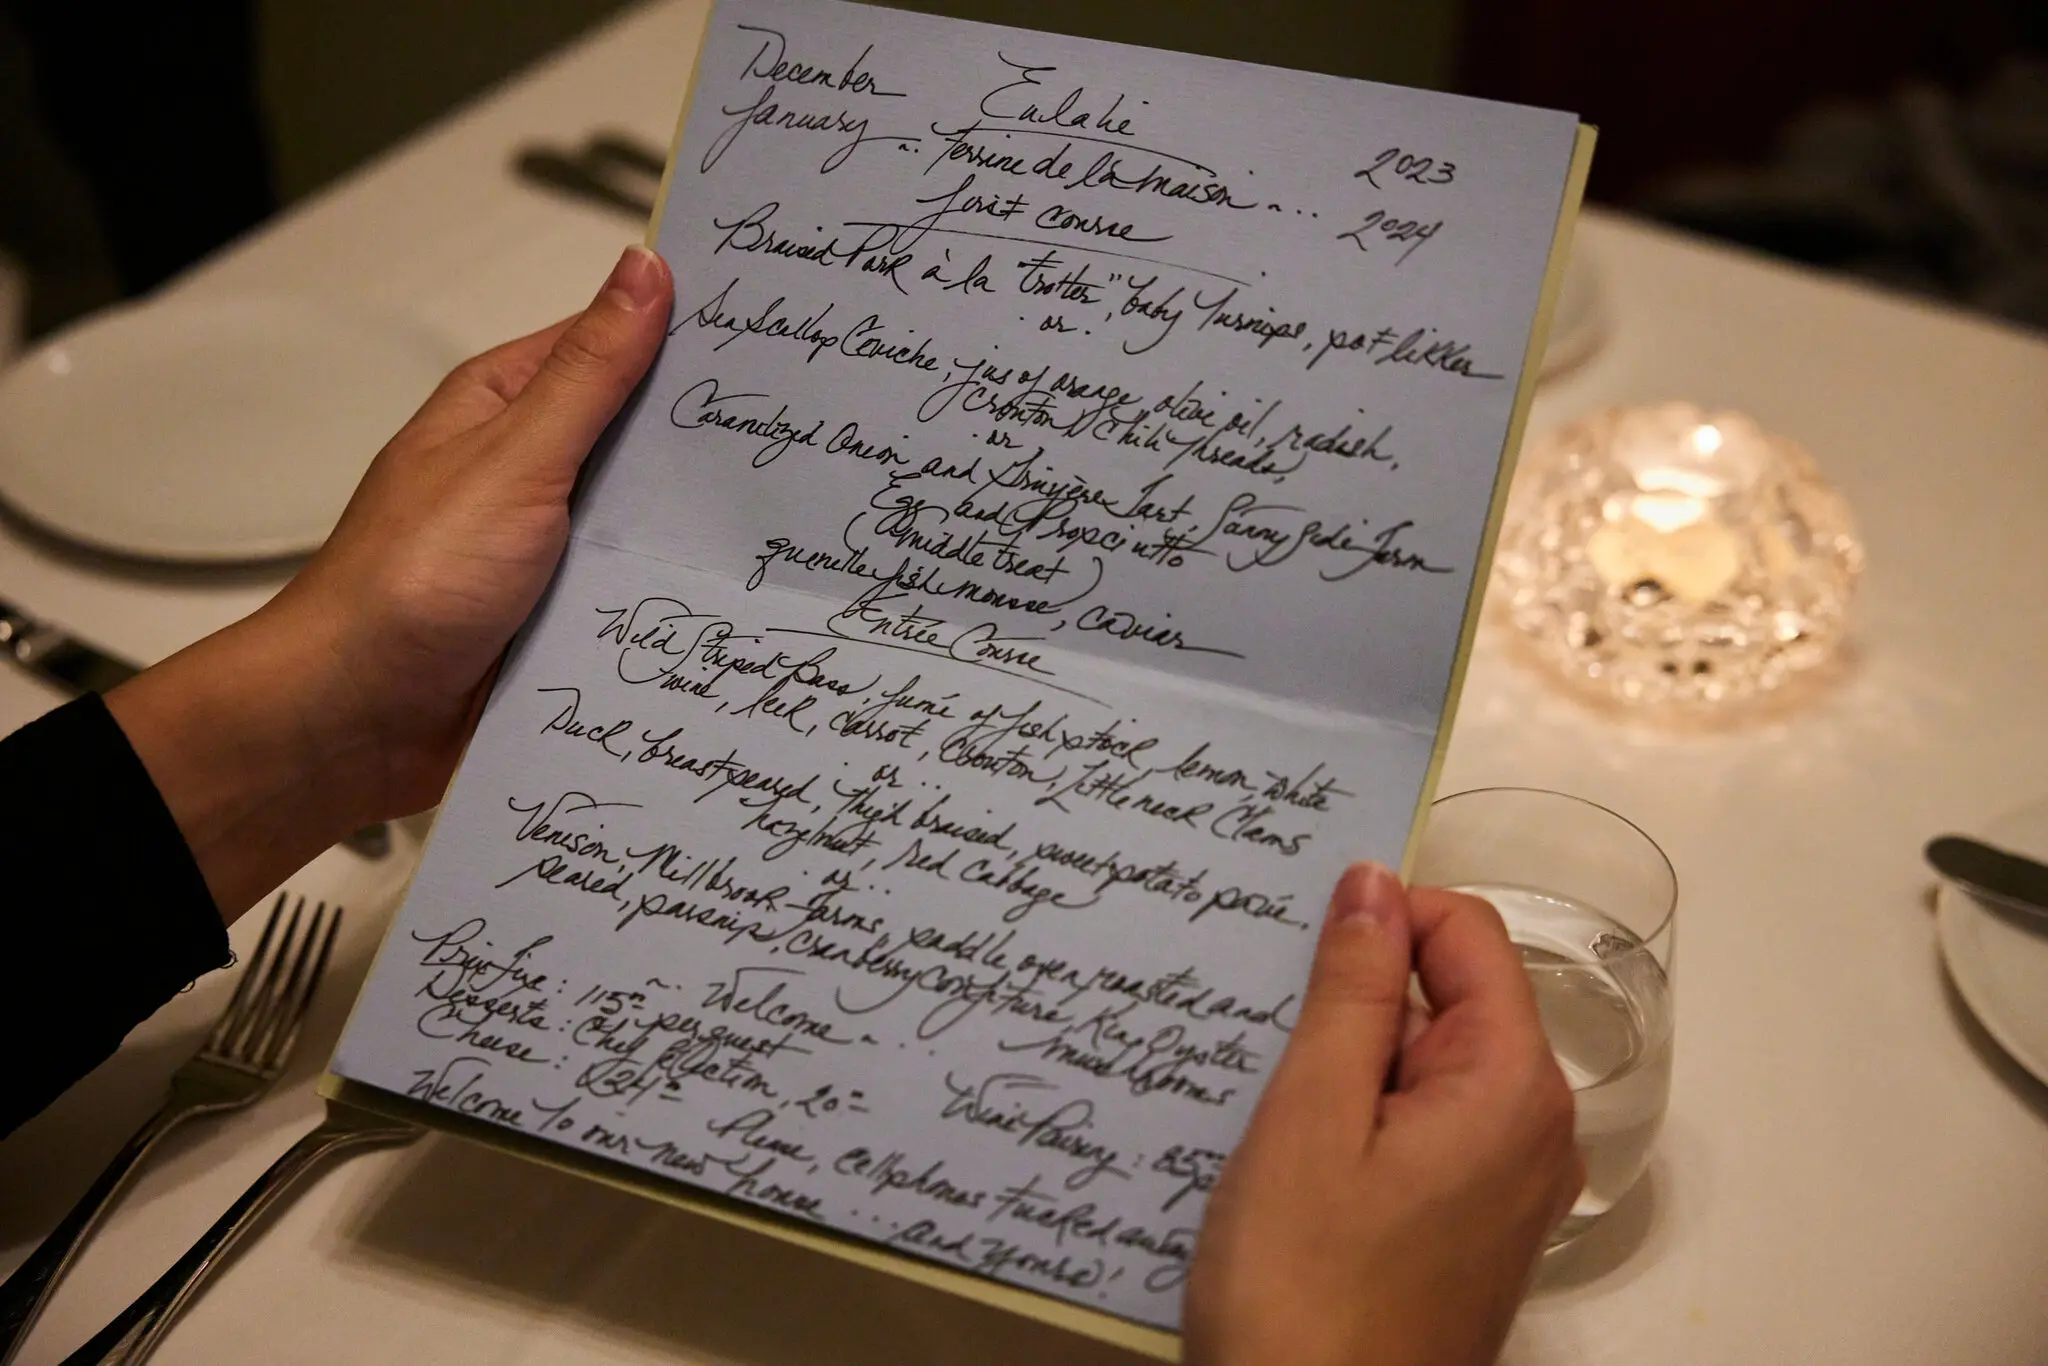 December Eulalie 2023
January ~.. terrine de la maison ~... 2024
first course
Braised Pork à la "trotter", baby turnips, pot likker
. or .
Sea Scallop Ceviche, jus of orange, olive oil, radish,
crouton, chili threads,
. or .
Caramelized Onion and Gruyère Tart, Sunny Side Farm
Egg and Propciutto
(a middle treat)
quenelle fish mousse, caviar
Entrée Course
Wild Striped Bass, fumé of fish stock, lemon, white
wine, leek, carrot, crouton, Littleneck Clams
. or ..
Duck, breast seared, thigh braised, sweet potato purée,
hazelnut, red cabbage
. or ..
Venison, Millbrook Farms, saddle oven roasted and
seared, parsnip, cranberry confiture, King Oyster
mushrooms
~.. Welcome ~...
Prix fixe: 115 per guest
Desserts: Chef Selection, 20 Wine Pairing: 85
Cheese: 24 Please, cellphones tucked away
Welcome to our new house ... and yours!